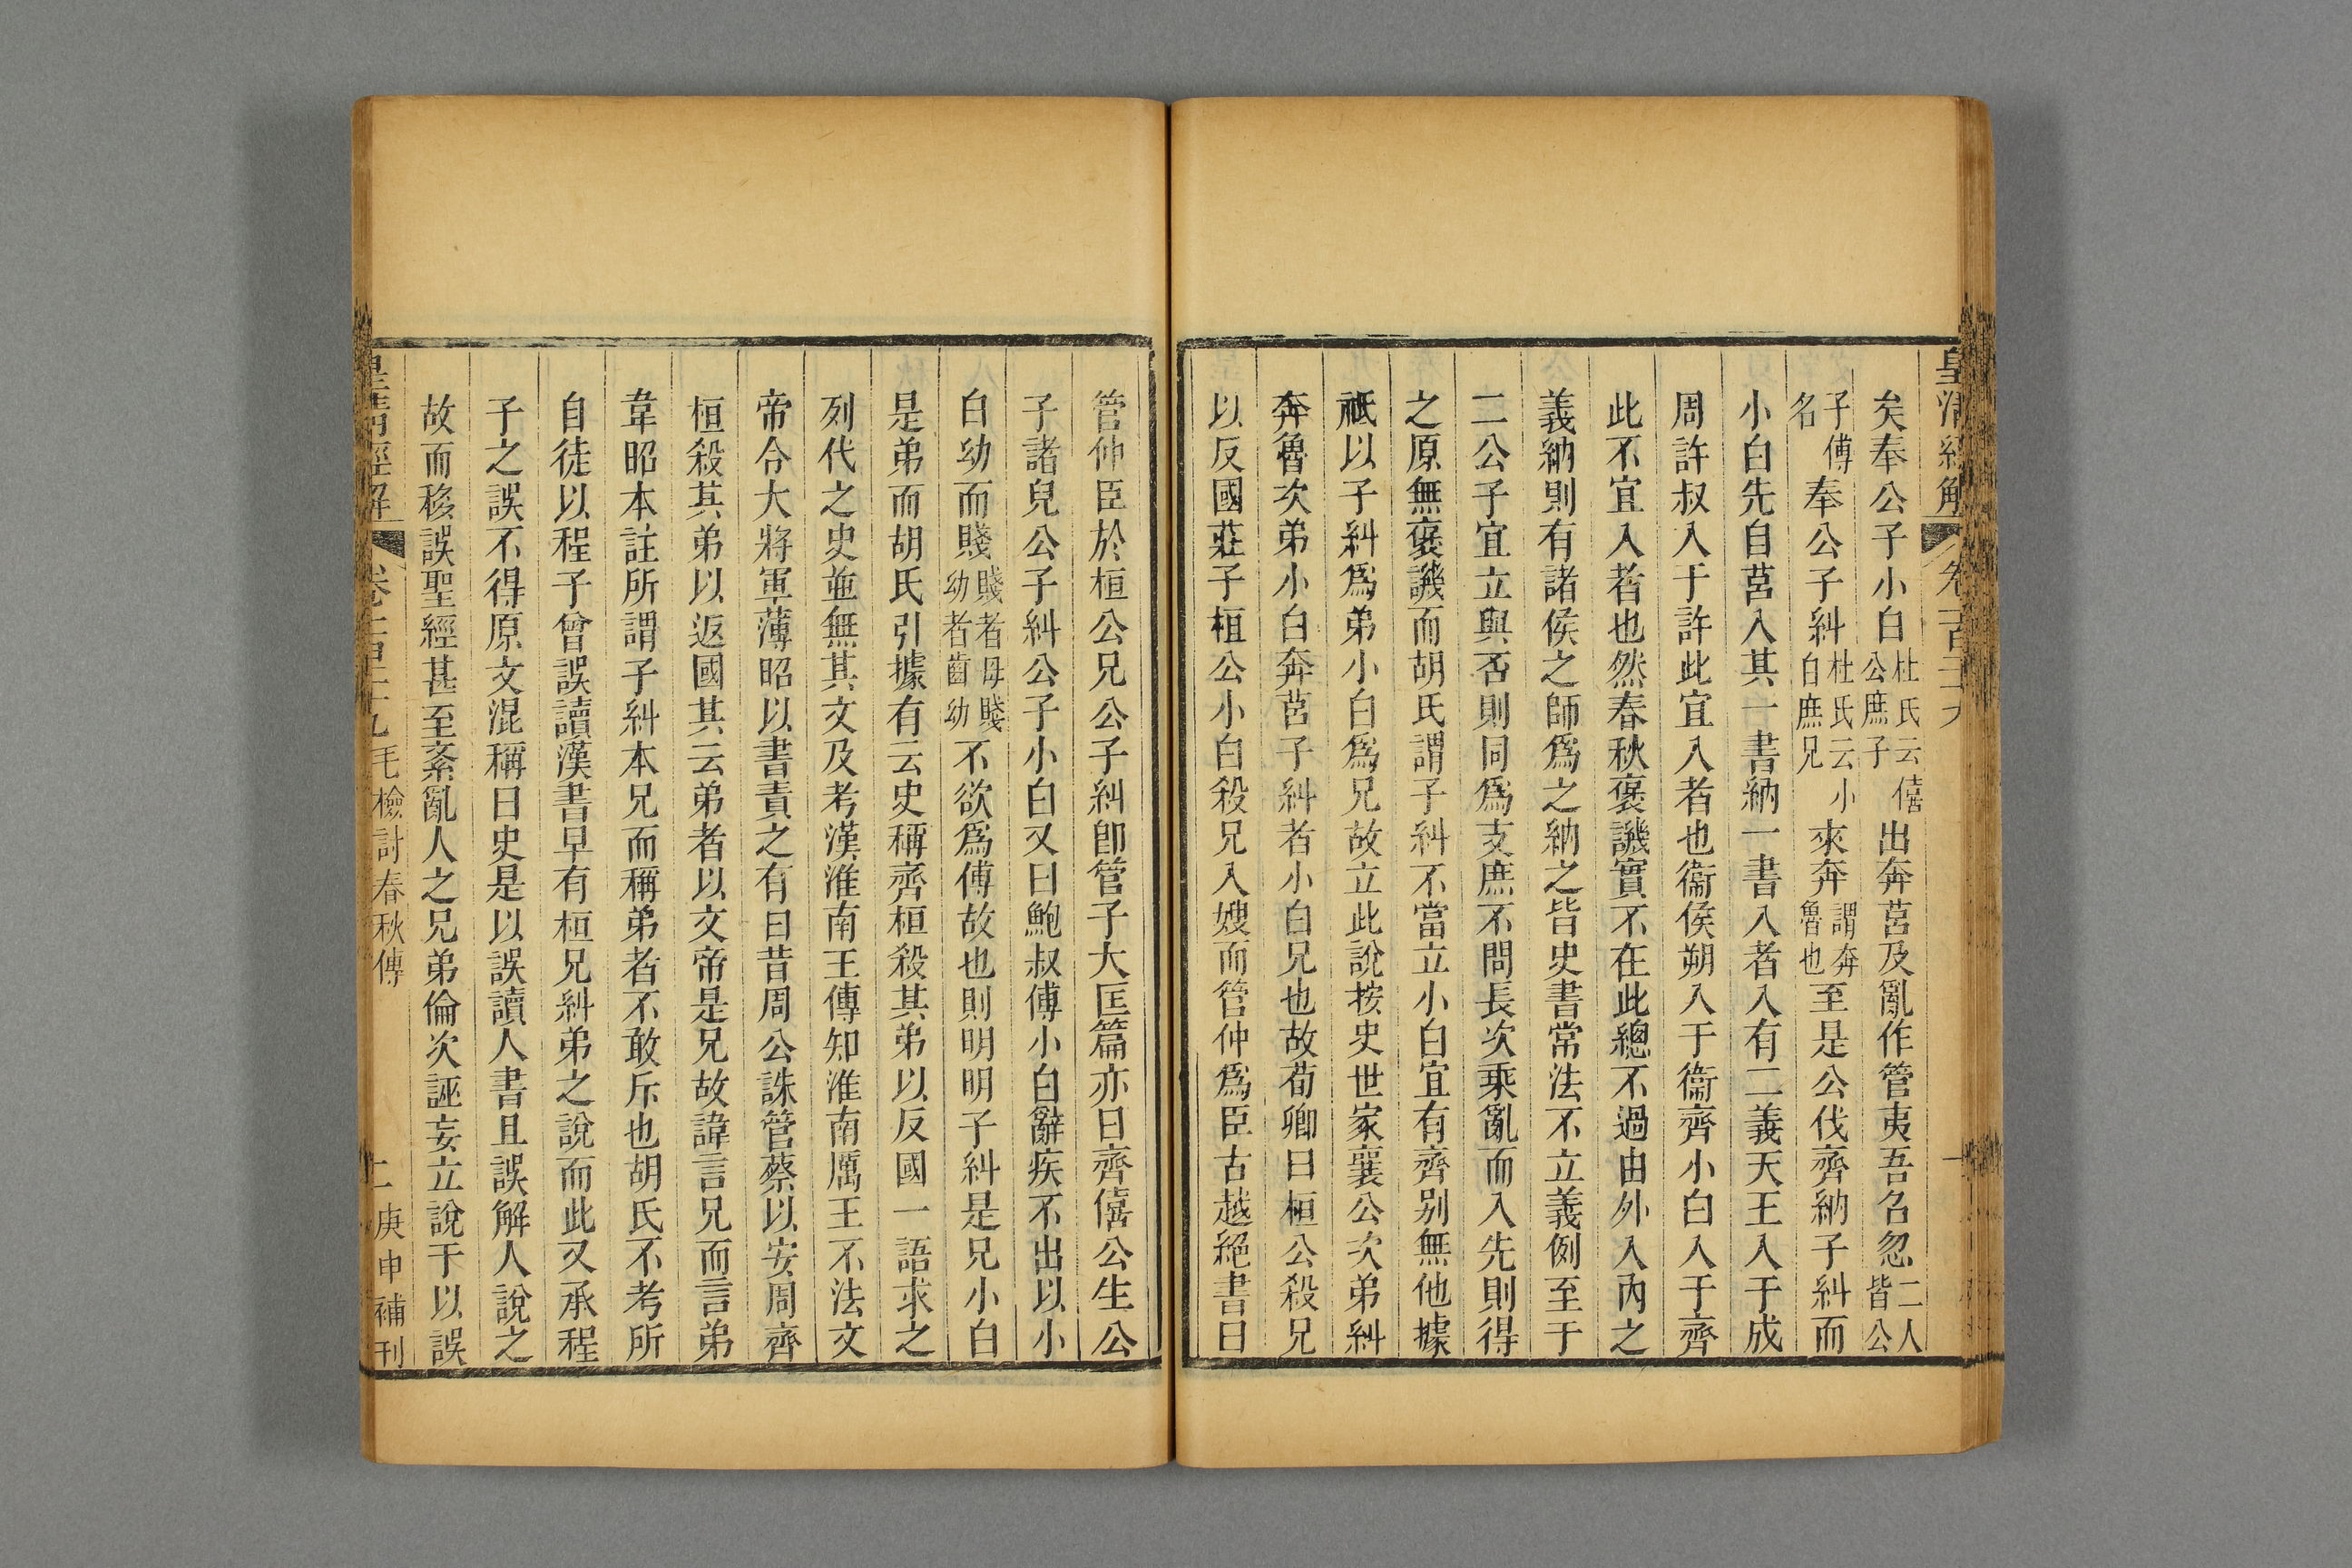 皇清經解
卷一百二十九
矣奉公子小白杜氏云僖公庶子出奔莒及亂作管夷吾召忽二人皆公
子傅名奉公子糾杜氏云小白庶兄來奔謂奔魯也至是公伐齊納子糾而
小白先自莒入其一書納一書入者入有二義天王入于成
周許叔入于許此宜入者也衞侯朔入于衞齊小白入于齊
此不宜入者也然春秋褒譏實不在此總不過由外入內之
義納則有諸侯之師爲之納之皆史書常法不立義例至于
二公子宜立與否則同爲支庶不問長次乘亂而入先則得
之原無褒譏而胡氏謂子糾不當立小白宜有齊别無他據
祗以子糾爲弟小白爲兄故立此說按史世家襄公次弟糾
奔魯次弟小白奔莒子糾者小白兄也故荀卿曰桓公殺兄
以反國莊子桓公小白殺兄入嫂而管仲爲臣古越絕書曰
管仲臣於桓公兄公子糾卽管子大匡篇亦曰齊僖公生公
子諸兒公子糾公子小白又曰鮑叔傅小白辭疾不出以小
白幼而賤賤者母賤幼者齒幼不欲爲傅故也則明明子糾是兄小白
是弟而胡氏引據有云史稱齊桓殺其弟以反國一語求之
列代之史並無其文及考漢淮南王傳知淮南厲王不法文
帝令大將軍薄昭以書責之有曰昔周公誅管蔡以安周齊
桓殺其弟以返國其云弟者以文帝是兄故諱言兄而言弟
韋昭本註所謂子糾本兄而稱弟者不敢斥也胡氏不考所
自徒以程子曾誤讀漢書早有桓兄糾弟之說而此又承程
子之誤不得原文混稱曰史是以誤讀人書且誤解人說之
故而移誤聖經甚至紊亂人之兄弟倫次誣妄立說于以誤
皇清經解
卷一百二十九
毛檢討春秋傳
二
庚申補刊